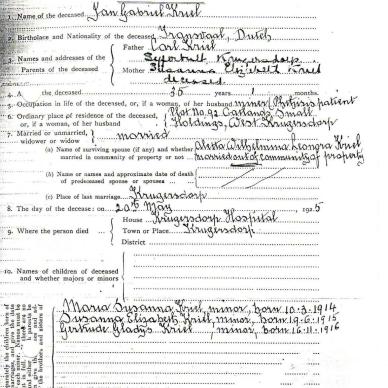 1. Name of the deceased Jan Gabriel Kriel
2. Birthplace and Nationality of the deceased Transvaal, Dutch
3. Names and addresses of the Parents of the deceased
Father Carl Kriel
Krugersdorp
Mother Susanna Elizabeth Kriel
deceased
4. A the deceased 35 years months.
5. Occupation in life of the deceased, or, if a woman, of her husband miner/Phthisis patient
6. Ordinary place of residence of the deceased, or, if a woman, of her husband Plot No. 92 Small
Holdings, West Krugersdorp
7. Married or unmarried, widower or widow married
(a) Name of surviving spouse (if any) and whether married in community of property or not Aletta Wilhelmina Kriel
married out of community of property
(b) Name or names and approximate date of death of predeceased spouse or spouses
(c) Place of last marriage Krugersdorp
8. The day of the decease: on 20th May 1925
9. Where the person died
House Krugersdorp Hospital
Town or Place Krugersdorp
District
10. Names of children of deceased and whether majors or minors
Maria Susanna Kriel, minor, born 10.3.1914
Susanna Elizabeth Kriel, minor, born 19.6.1915
Gertrude Gladys Kriel, minor, born 16.11.1916